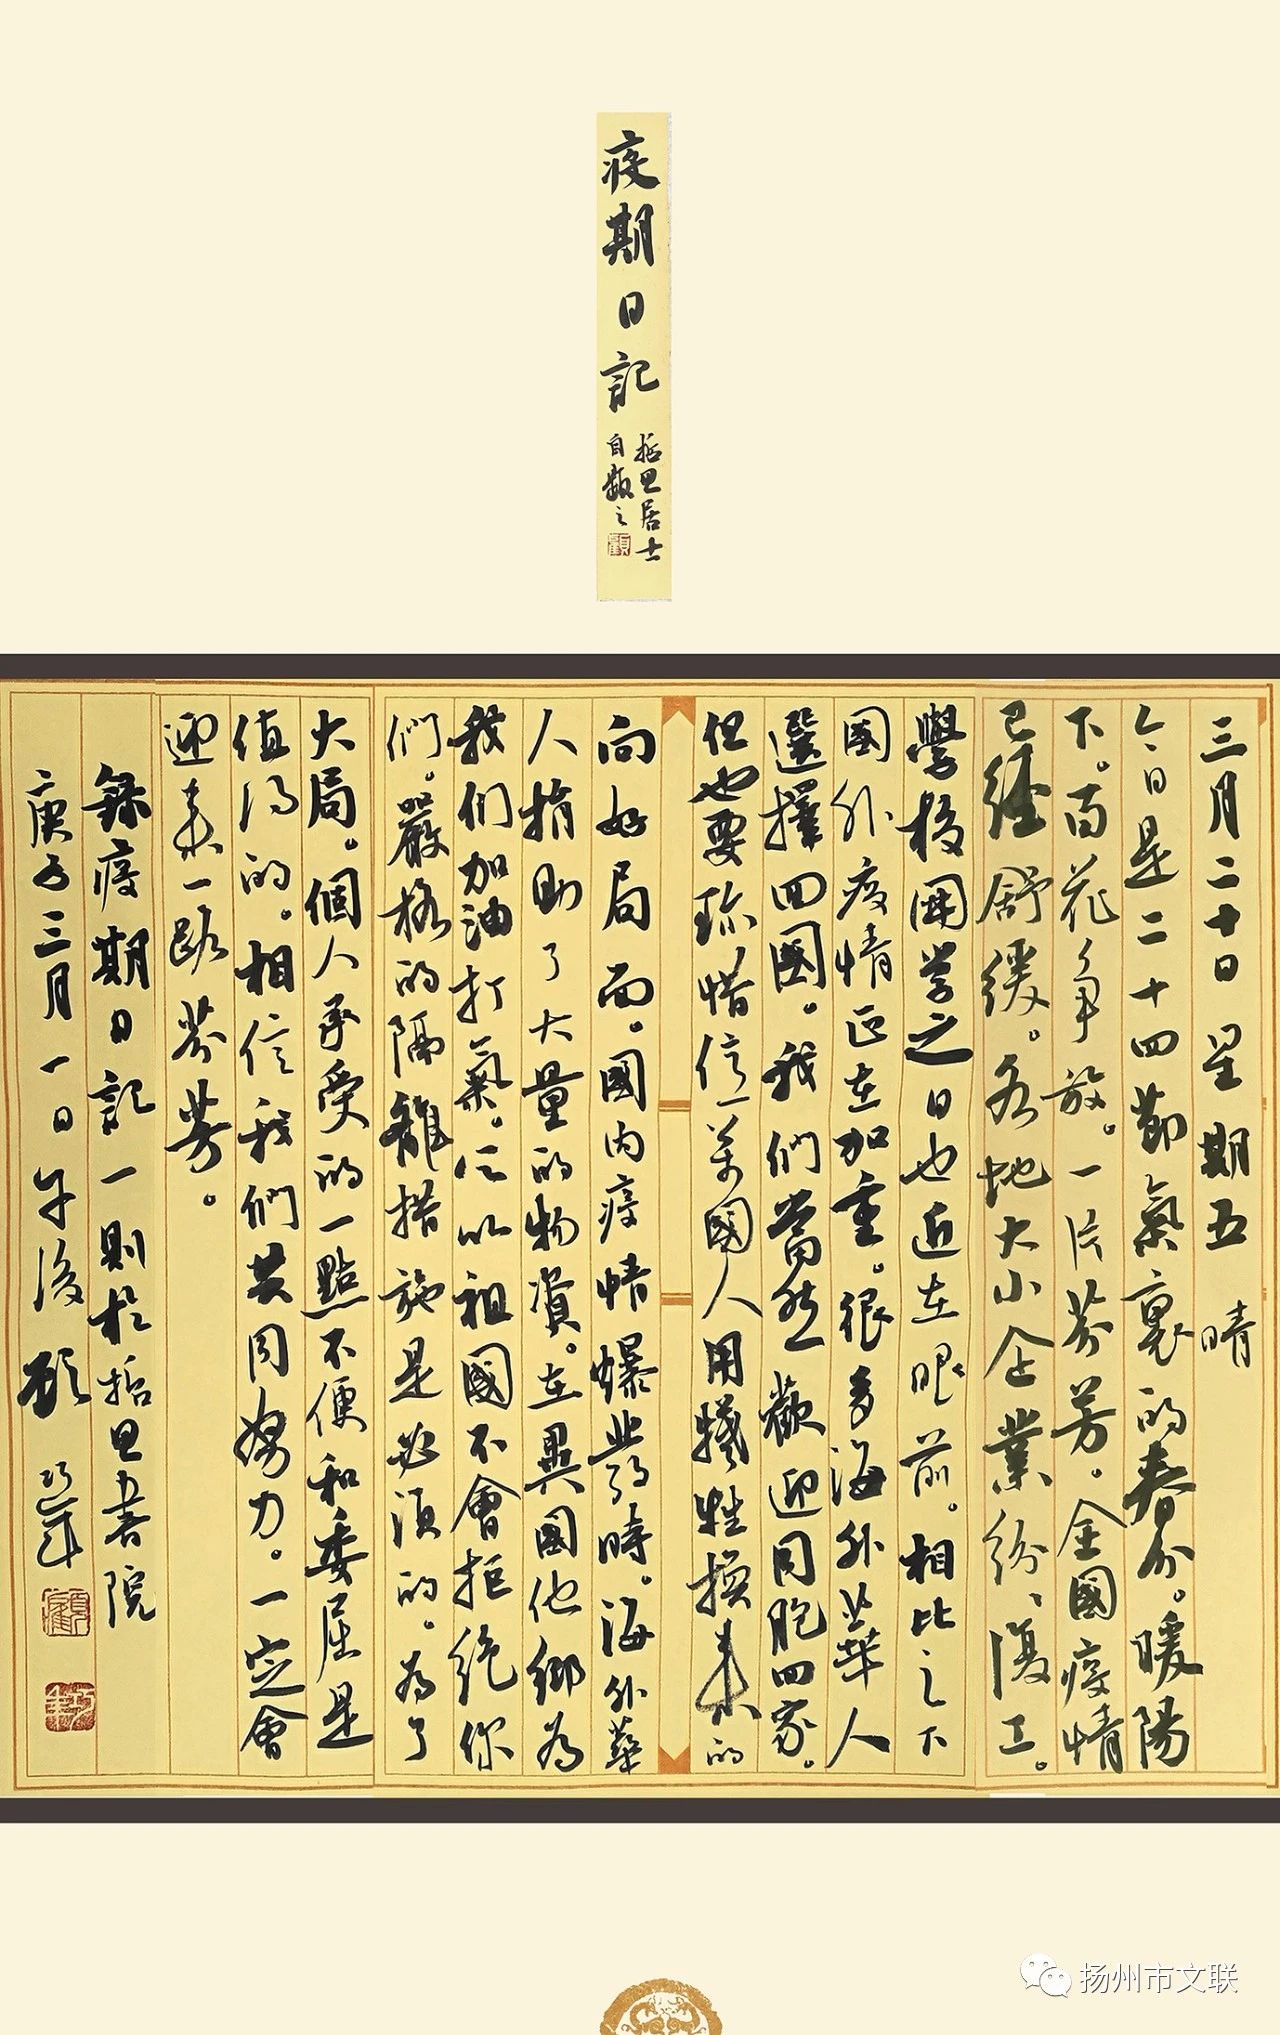 疫期日記
拈思居士
自題之
三月二十日 星期五 晴
今日是二十四節氣裏的春分。暖陽
下。百花爭放。一片芬芳。全國疫情
已經舒緩。各地大小企業紛、復工。
學校開學之日也近在眼前。相比之下
國外疫情正在加重。很多海外華人
選擇回國。我們當然歡迎同胞回家。
但也要珍惜億萬國人用犧牲換來的
向好局面。國內疫情爆發時。海外華
人捐助了大量的物資。在異國他鄉為
我们加油打氣。所以祖國不會拒絕你
們。嚴格的隔離措施是必須的。為了
大局。個人承受的一點不便和委屈是
值得的。相信我們共同努力。一定會
迎来一路芬芳。
錄疫期日記一則於拈思書院
庚子三月一日午後 顧
扬州市文联